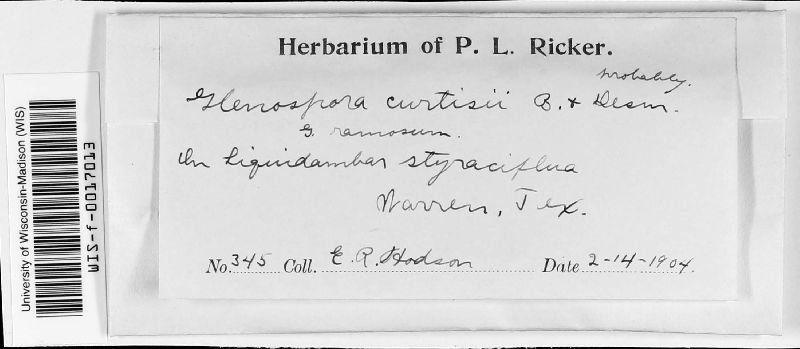 Herbarium of P. L. Ricker.
probably.
Glenospora curtisii B. & Desm.
G. ramosum.
On Liquidambar styraciflua
Warren, Tex.
No. 345 Coll. E. R. Hodson Date 2-14-1904.
University of Wisconsin-Madison (WIS)
WIS-f-0017013